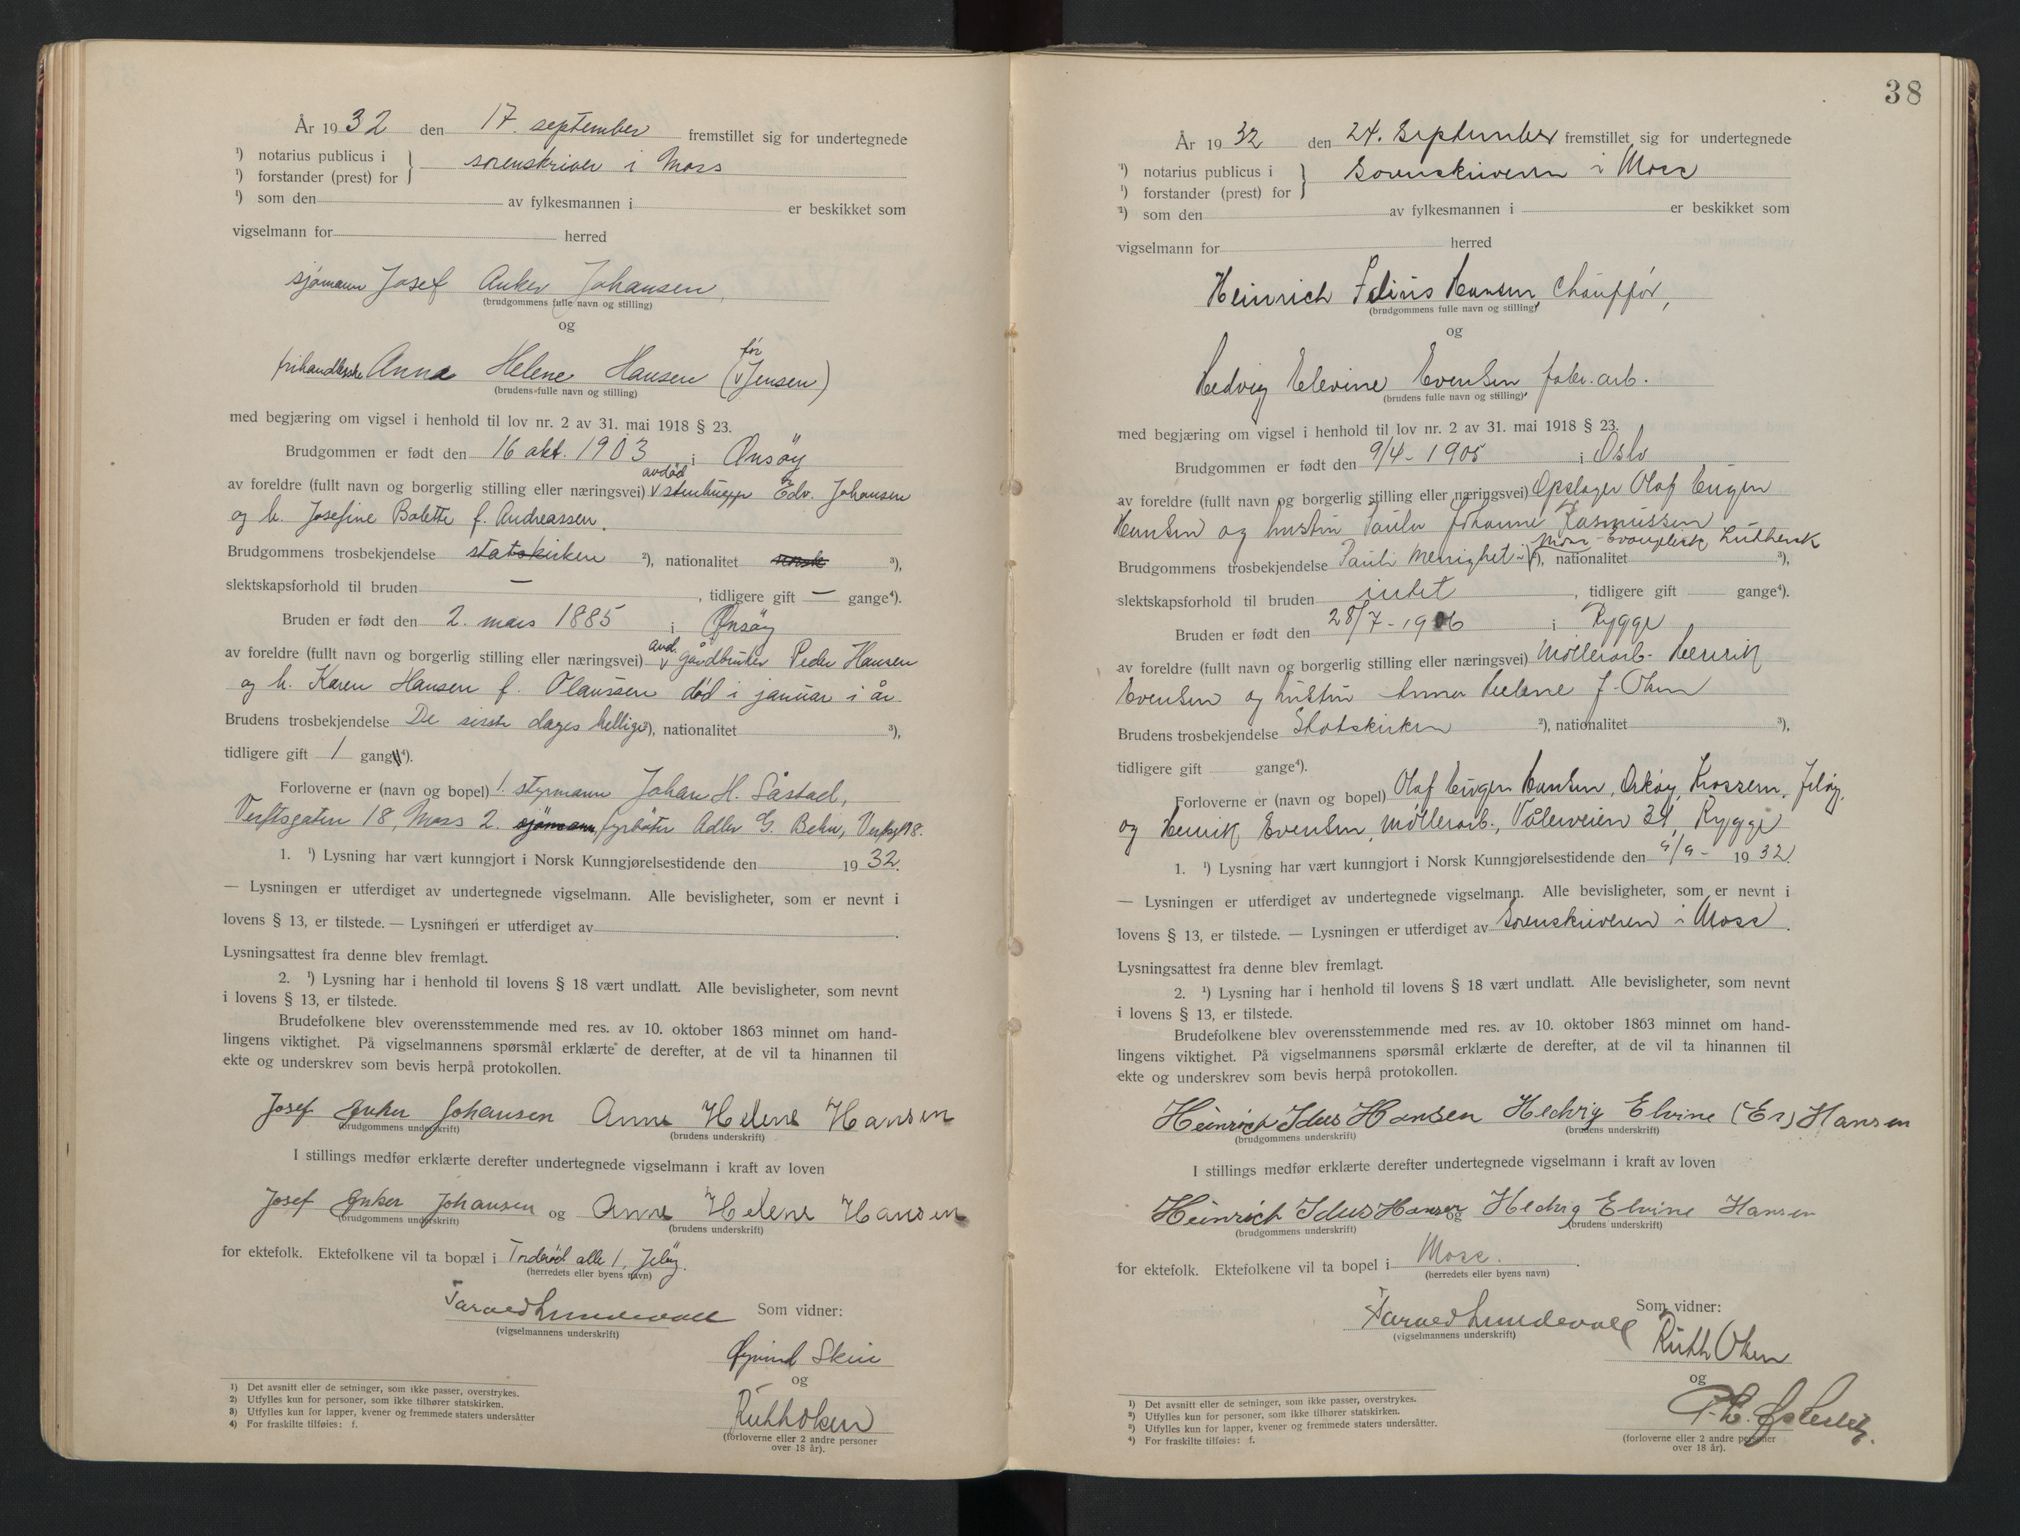 År 1932 den 17. september fremstillet sig for undertegnede
¹) notarius publicus i
¹) forstander (prest) for } sorenskriver i Moss
¹) som den av fylkesmannen i er beskikket som
vigselmann for herred
sjømann Josef Anker Johansen,
(brudgommens fulle navn og stilling)
og
frihandlerske Anna Helene Hansen (før Jensen)
(brudens fulle navn og stilling)
med begjæring om vigsel i henhold til lov nr. 2 av 31. mai 1918 § 23.
Brudgommen er født den 16 okt. 1903 i Onsøy
av foreldre (fullt navn og borgerlig stilling eller næringsvei) avdød stenhugger Edv. Johansen
og h. Josefine Bolette f. Andreassen.
Brudgommens trosbekjendelse statskirken ²), nationalitet norsk ³),
slektskapsforhold til bruden — , tidligere gift — gange⁴).
Bruden er født den 2. mars 1885 i Onsøy
av foreldre (fullt navn og borgerlig stilling eller næringsvei) avd. gårdbruker Peder Hansen
og h. Karen Hansen f. Olaussen død i januar i år
Brudens trosbekjendelse De siste dages hellige ²), nationalitet ³),
tidligere gift 1 gang⁴).
Forloverne er (navn og bopel) 1. styrmann Johan H. Såstad,
Verftsgaten 18, Moss 2. sjømann fyrbøter Adler G. Behn, Verftsgt 18.
1. ¹) Lysning har vært kunngjort i Norsk Kunngjørelsestidende den 1932.
— Lysningen er utferdiget av undertegnede vigselmann. Alle bevisligheter, som er nevnt i
lovens § 13, er tilstede. — Lysningen er utferdiget av .
Lysningsattest fra denne blev fremlagt.
2. ¹) Lysning har i henhold til lovens § 18 vært undlatt. Alle bevisligheter, som nevnt
i lovens § 13, er tilstede.
Brudefolkene blev overensstemmende med res. av 10. oktober 1863 minnet om hand-
lingens viktighet. På vigselmannens spørsmål erklærte de derefter, at de vil ta hinannen til
ekte og underskrev som bevis herpå protokollen.
Josef Anker Johansen Anna Helene Hansen
(brudgommens underskrift) (brudens underskrift)
I stillings medfør erklærte derefter undertegnede vigselmann i kraft av loven
Josef Anker Johansen og Anna Helene Hansen
(brudgommens underskrift) (brudens underskrift)
for ektefolk. Ektefolkene vil ta bopæl i Tronderød alle 1, Jeløy.
(herredets eller byens navn)
Tarald Lundevall Som vidner:
(vigselmannens underskrift)
Øyvind Skui
og
Ruth Oken
(forloverne eller 2 andre personer
over 18 år).
1) Det avsnitt eller de setninger, som ikke passer, overstrykes.
2) Utfylles kun for personer, som ikke tilhører statskirken.
3) Utfylles kun for lapper, kvener og fremmede staters undersåtter
4) For fraskilte tilføies: f.
38
År 1932 den 24. September fremstillet sig for undertegnede
¹) notarius publicus i
¹) forstander (prest) for } Sorenskriveren i Moss
¹) som den av fylkesmannen i er beskikket som
vigselmann for herred
Heinrich Idius Hansen, Chauffør,
(brudgommens fulle navn og stilling)
og
Hedvig Elevine Evensen, fabr. arb.
(brudens fulle navn og stilling)
med begjæring om vigsel i henhold til lov nr. 2 av 31. mai 1918 § 23.
Brudgommen er født den 9/4 - 1905 i Oslo
av foreldre (fullt navn og borgerlig stilling eller næringsvei) Opslager Olaf Eugen
Hansen og hustru Paula Johanne Rasmussen
Brudgommens trosbekjendelse Pauli Menighet i Moss - Evangelisk Luthersk ²), nationalitet ³),
slektskapsforhold til bruden intet , tidligere gift gange⁴).
Bruden er født den 28/7 - 1906 i Rygge
av foreldre (fullt navn og borgerlig stilling eller næringsvei) Møllerarb. Henrik
Evensen og hustru Anna Helene f. Oken
Brudens trosbekjendelse Statskirken ²), nationalitet ³),
tidligere gift gange⁴).
Forloverne er (navn og bopel) Olaf Eugen Hansen, Orkøy, Krossern, Jeløy,
og Henrik Evensen, Møllerarb., Vålerveien 31, Rygge
1. ¹) Lysning har vært kunngjort i Norsk Kunngjørelsestidende den 9/9 - 1932.
— Lysningen er utferdiget av undertegnede vigselmann. Alle bevisligheter, som er nevnt i
lovens § 13, er tilstede. — Lysningen er utferdiget av Sorenskriveren i Moss.
Lysningsattest fra denne blev fremlagt.
2. ¹) Lysning har i henhold til lovens § 18 vært undlatt. Alle bevisligheter, som nevnt
i lovens § 13, er tilstede.
Brudefolkene blev overensstemmende med res. av 10. oktober 1863 minnet om hand-
lingens viktighet. På vigselmannens spørsmål erklærte de derefter, at de vil ta hinannen til
ekte og underskrev som bevis herpå protokollen.
Heinrich Idus Hansen Hedvig Elvine (Ev) Hansen
(brudgommens underskrift) (brudens underskrift)
I stillings medfør erklærte derefter undertegnede vigselmann i kraft av loven
Heinrich Idus Hansen og Hedvig Elvine Hansen
(brudgommens underskrift) (brudens underskrift)
for ektefolk. Ektefolkene vil ta bopel i Moss.
(herredets eller byens navn)
Tarald Lundevall Som vidner:
(vigselmannens underskrift)
Ruth Oken
og
(forloverne eller 2 andre personer
over 18 år).
1) Det avsnitt eller de setninger, som ikke passer, overstrykes.
2) Utfylles kun for personer, som ikke tilhører statskirken.
3) Utfylles kun for lapper, kvener og fremmede staters undersåtter.
4) For fraskilte tilføies: f.